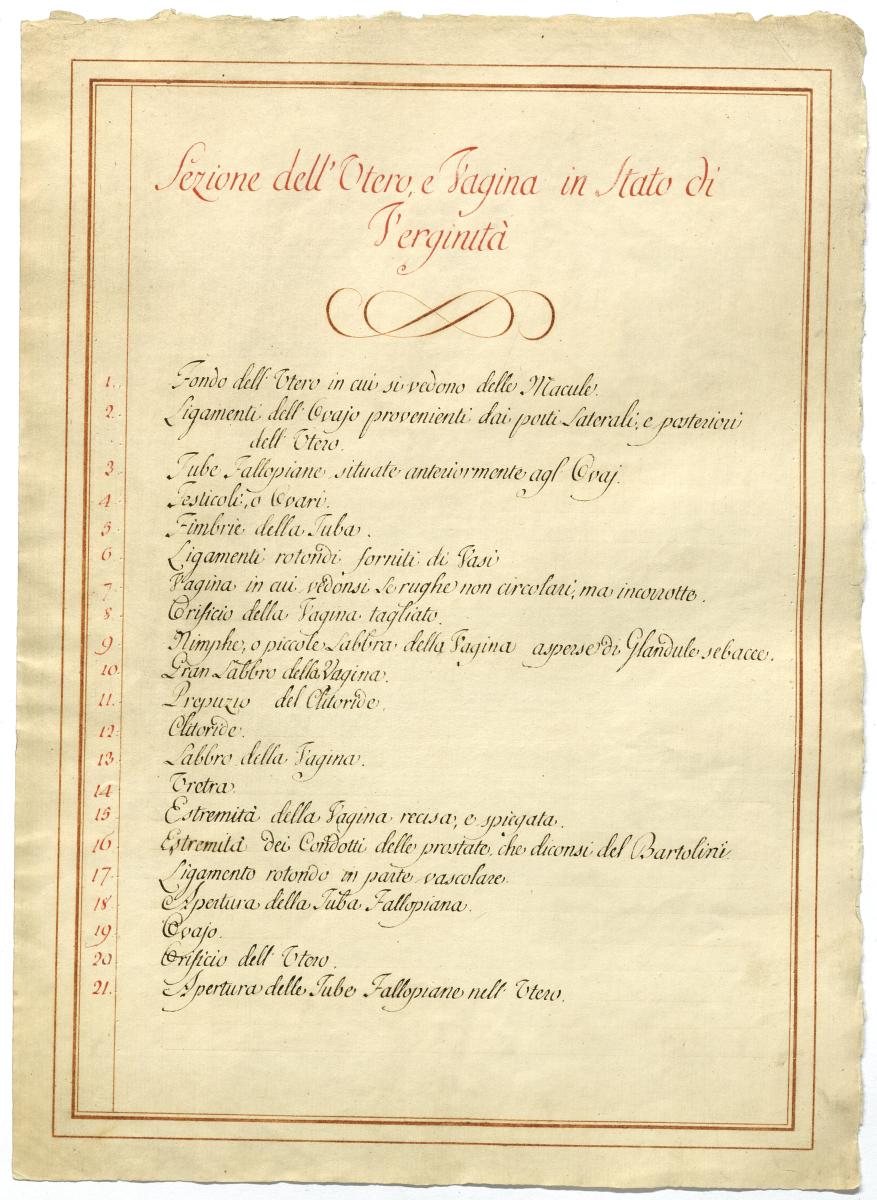 Sezione dell' Utero, e Vagina in Stato di
Verginità
1. Fondo dell' Utero in cui si vedono delle Macule.
2. Ligamenti dell' Ovajo provenienti dai Laterali, e posteriori
dell' Utero.
3. Tube Fallopiane situate anteriormente agl' Ovaj.
4. Testicoli, o Ovari.
5. Fimbrie della Tuba.
6. Ligamenti rotondi forniti di Vasi
7. Vagina in cui vedonsi le rughe non circolari, ma incorrotte.
8. Orificio della Vagina tagliato.
9. Nimphe, o piccole Labbra della Vagina asperse di Glandule sebacee.
10. Gran Labbro della Vagina.
11. Prepuzio del Clitoride.
12. Clitoride.
13. Labbro della Vagina.
14. Uretra.
15. Estremità della Vagina recisa, e spiegata.
16. Estremità dei Condotti delle prostate, che diconsi del Bartolini
17. Ligamento rotondo in parte vascolare.
18. Apertura della Tuba Fallopiana.
19. Ovajo.
20. Orificio dell' Utero.
21. Apertura delle Tube Fallopiane nell' Utero.